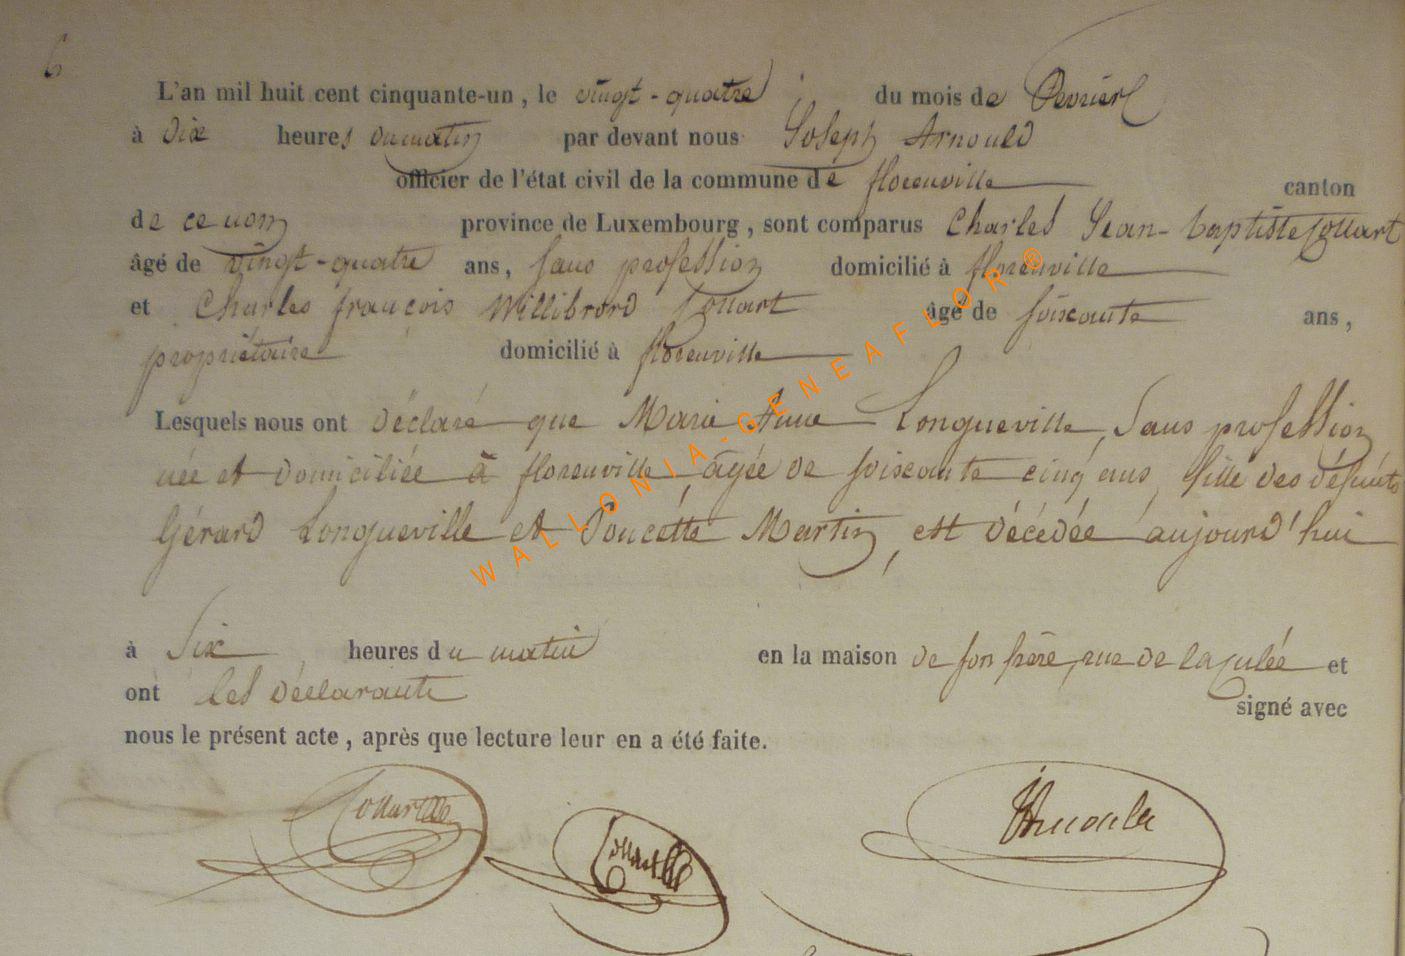 6
L'an mil huit cent cinquante-un, le vingt-quatre du mois de Fevrier
à dix heures du matin par devant nous Joseph Arnould
officier de l'état civil de la commune de florenville canton
de ce nom province de Luxembourg, sont comparus Charles Jean-baptiste Collart
âgé de vingt-quatre ans, sans profession domicilié à florenville
et Charles françois Willibrord Collart âgé de soixante ans,
propriétaire domicilié à florenville
Lesquels nous ont déclaré que Marie Anne Longueville, sans profession
née et domiciliée à florenville, âgée de soixante cinq ans, fille des défunts
Gérard Longueville et Poncette Martin, est décédée aujourd'hui
à six heures du matin en la maison de son frère, rue de la culée et
ont les déclarants signé avec
nous le présent acte, après que lecture leur en a été faite.
Collart Collart Arnould
WALLONIA-GENEAFLOR®